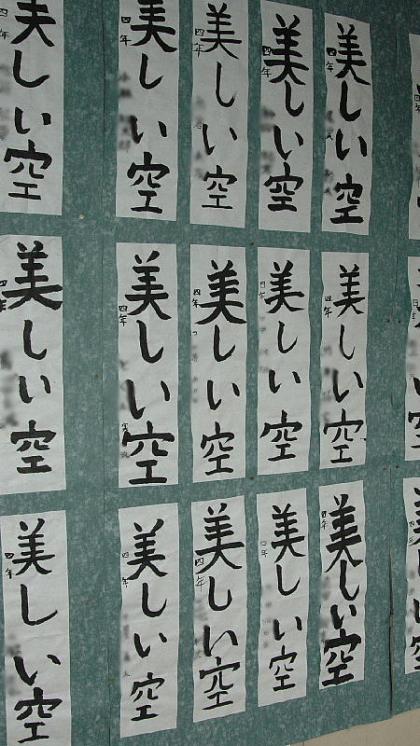 美しい空
四年
美しい空
四年
美しい空
四年
美しい空
四年
美しい空
四年
美しい空
四年
美しい空
四年
美しい空
四年
美しい空
四年
美しい空
四年
美しい空
四年
美しい空
四年
美しい空
四年
美しい空
四年
美しい空
四年